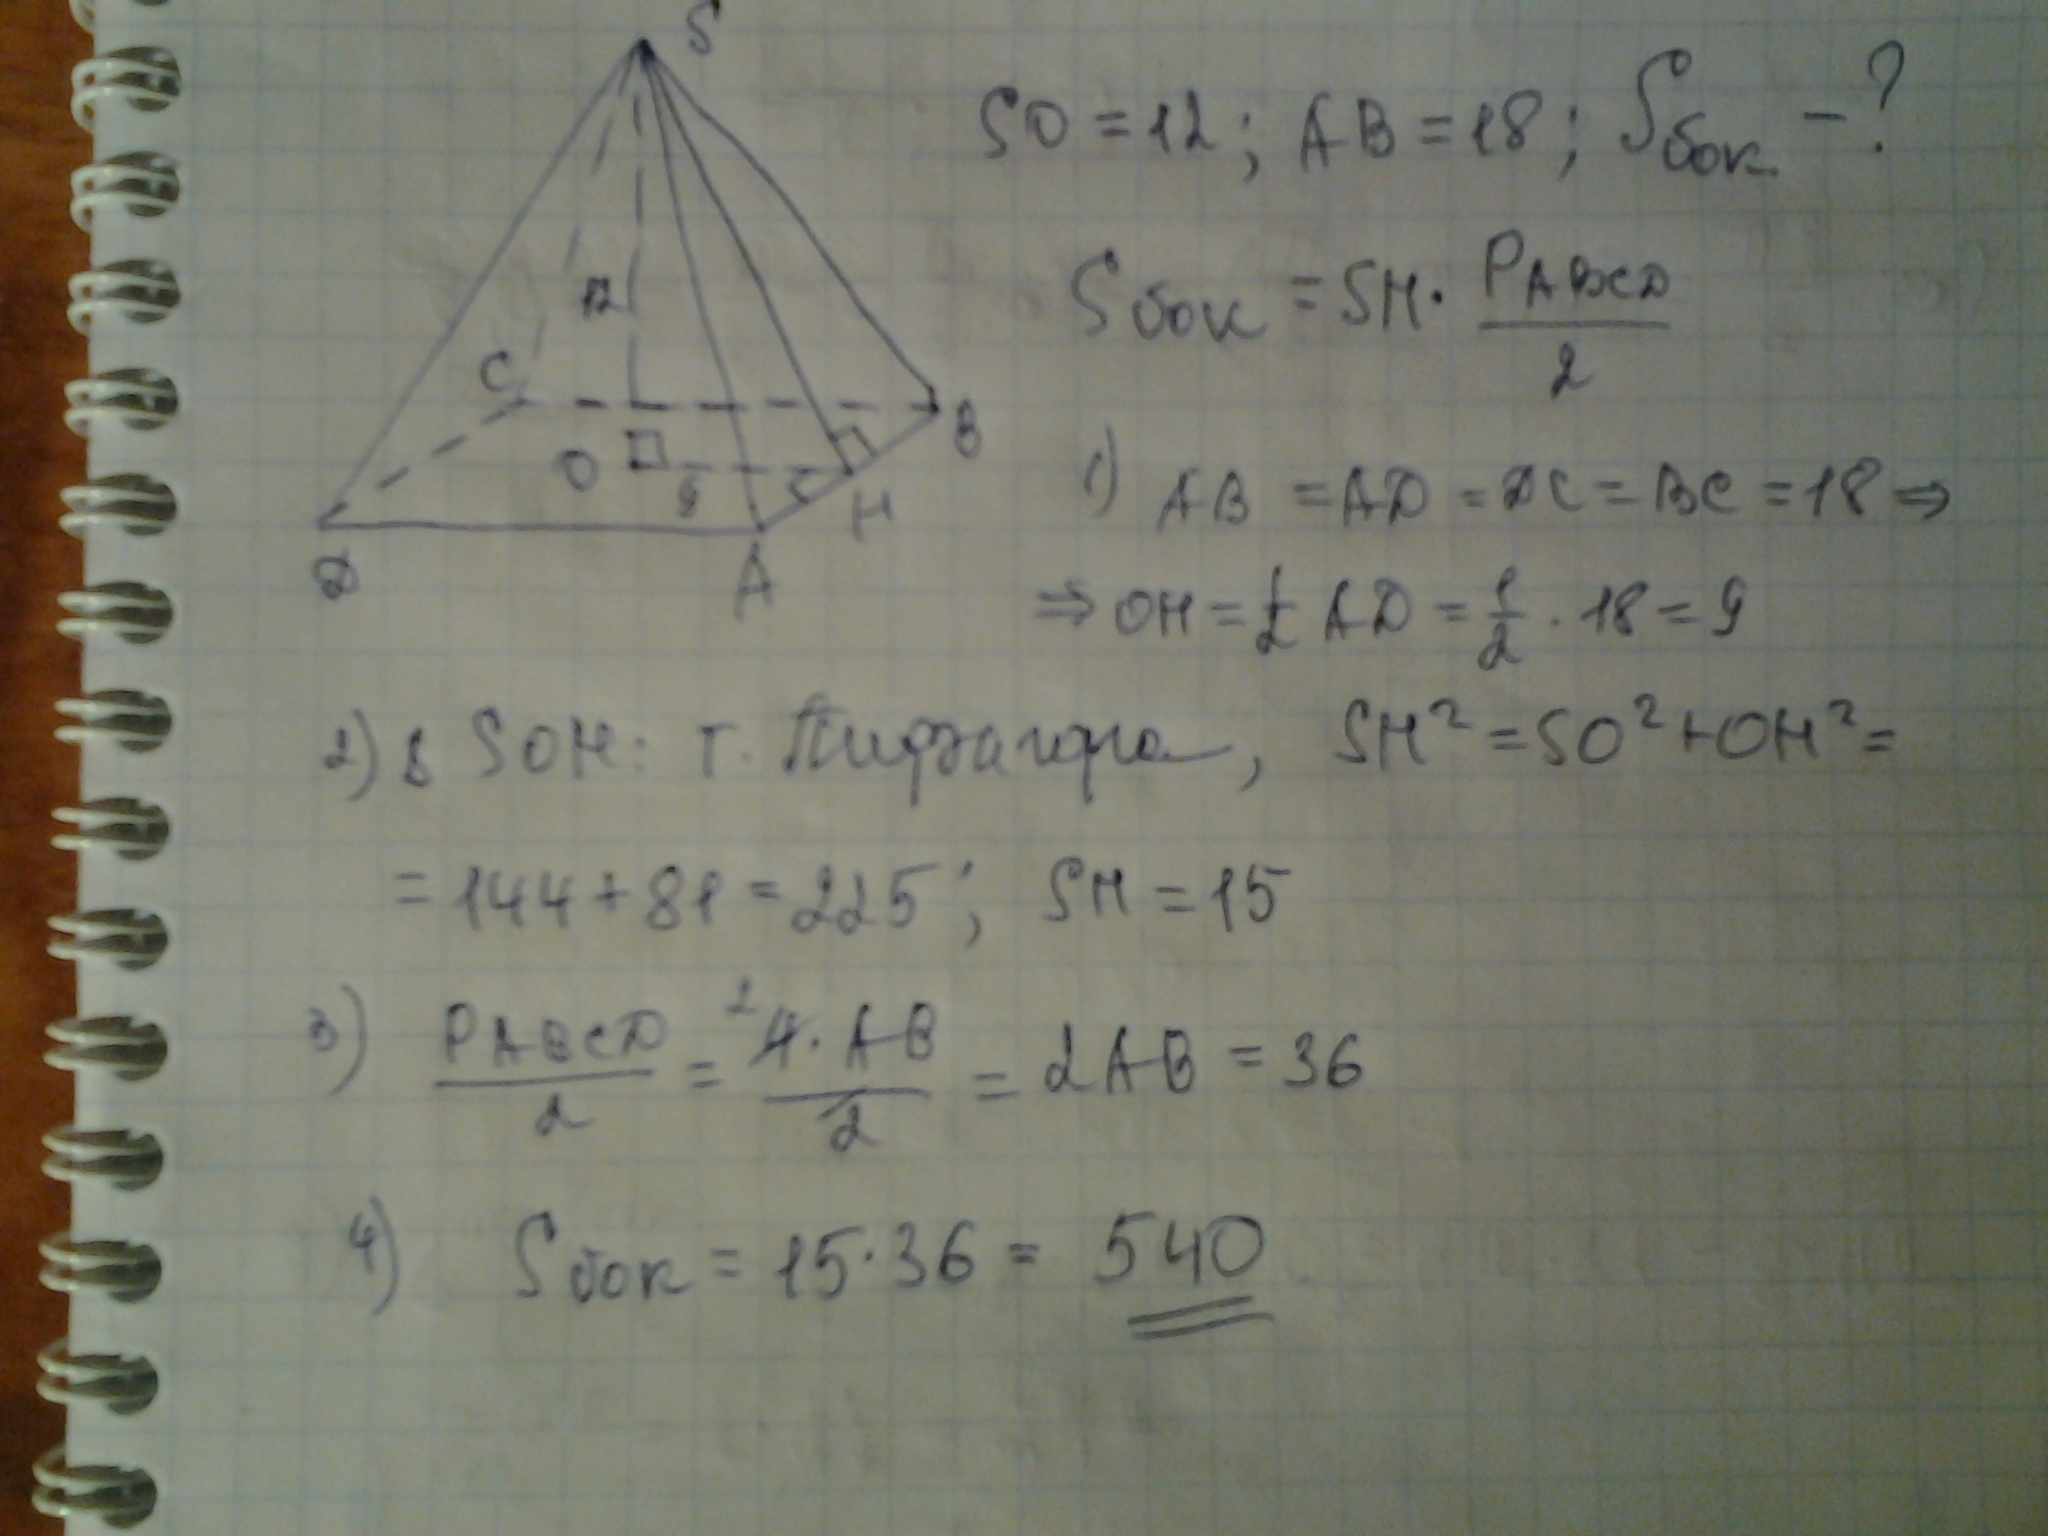 S
SO = 12 ; AB = 18 ; Sбок. - ?
12
Sбок = SH · PABCD / 2
C
B
O
9
H
D
A
1) AB = AD = DC = BC = 18 ⇒
⇒ OH = 1/2 AD = 1/2 · 18 = 9
2) в SOH: т. Пифагора, SH² = SO² + OH² =
= 144 + 81 = 225 ; SH = 15
3) PABCD / 2 = ²4 · AB / 2 = 2AB = 36
4) Sбок = 15 · 36 = 540